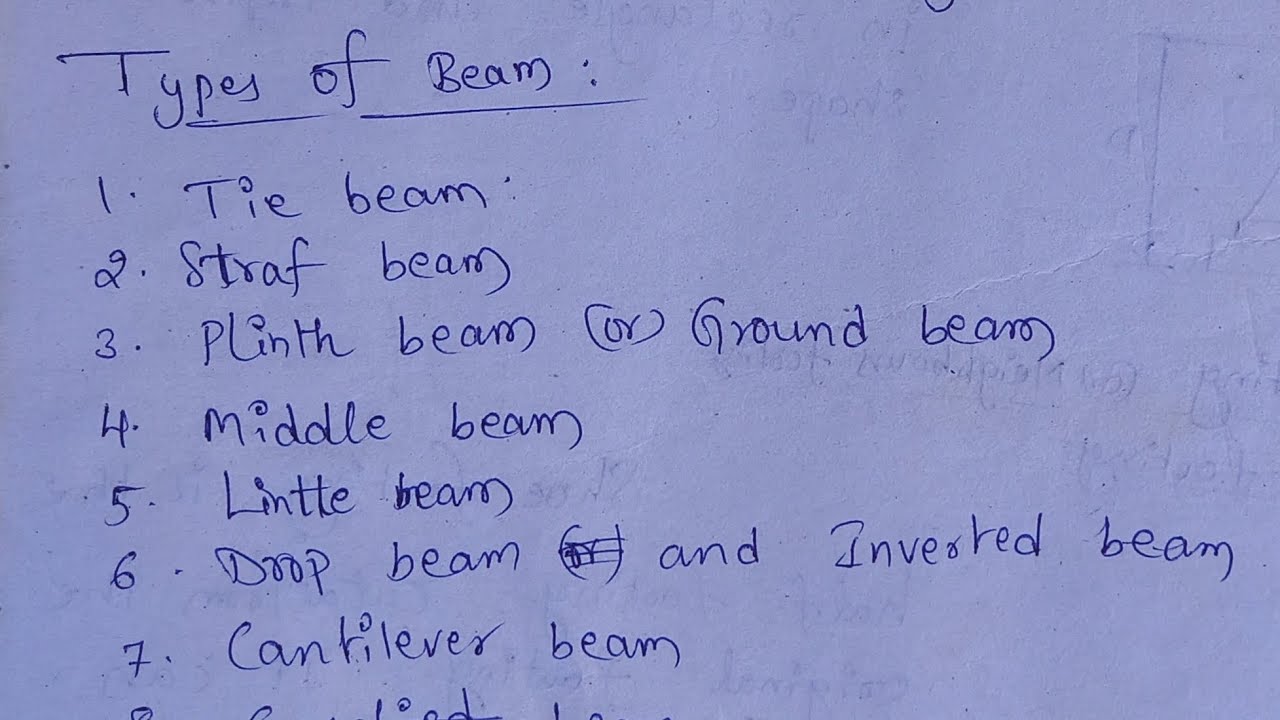 Types of Beam :
1. Tie beam.
2. Straf beam
3. Plinth beam (or) Ground beam
4. Middle beam
5. Lintte beam
6. Drop beam and Inverted beam
7. Cantilever beam